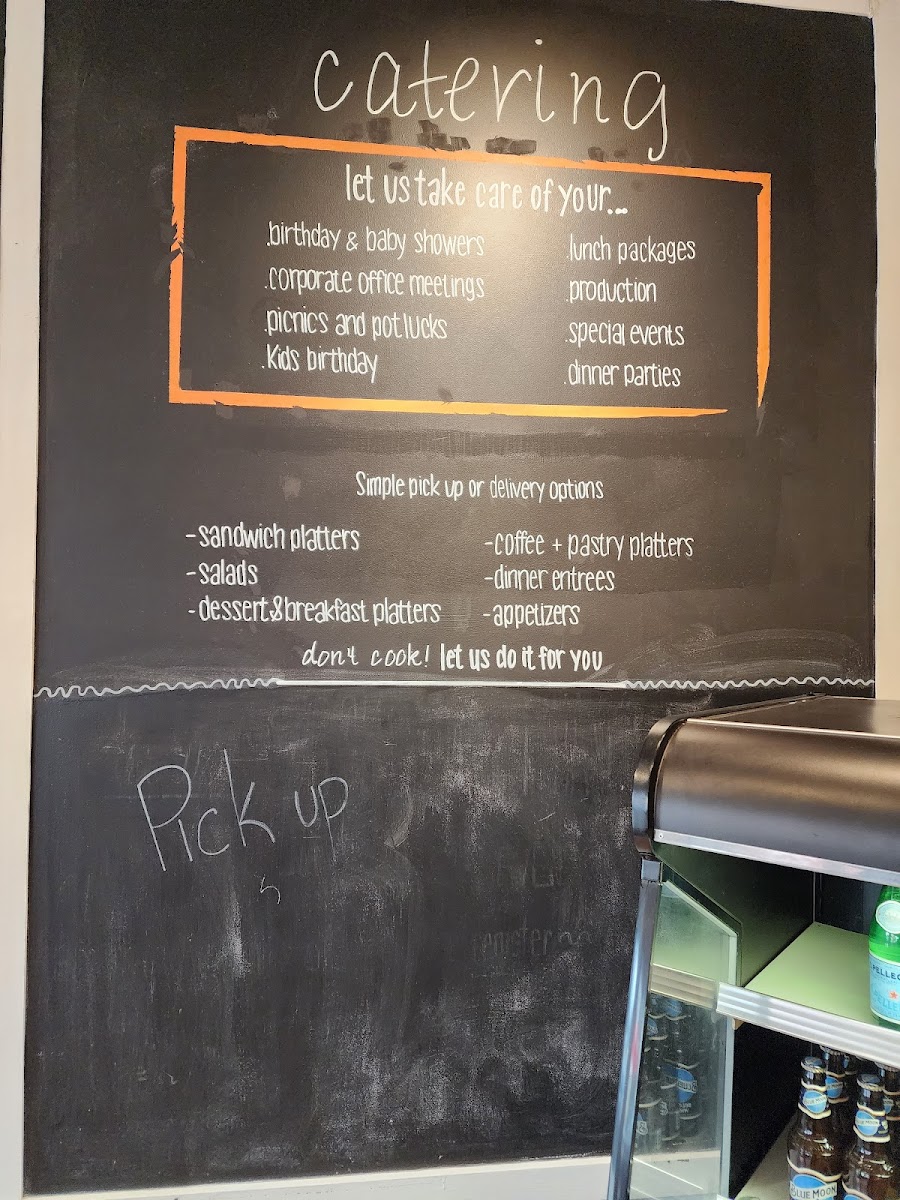 catering
let us take care of your...
.birthday & baby showers
.corporate office meetings
.picnics and potlucks
.Kids birthday
.lunch packages
.production
.special events
.dinner parties
Simple pick up or delivery options
-sandwich platters
-salads
-dessert&breakfast platters
-coffee + pastry platters
-dinner entrees
-appetizers
don't cook! let us do it for you
Pick up
BLUE MOON